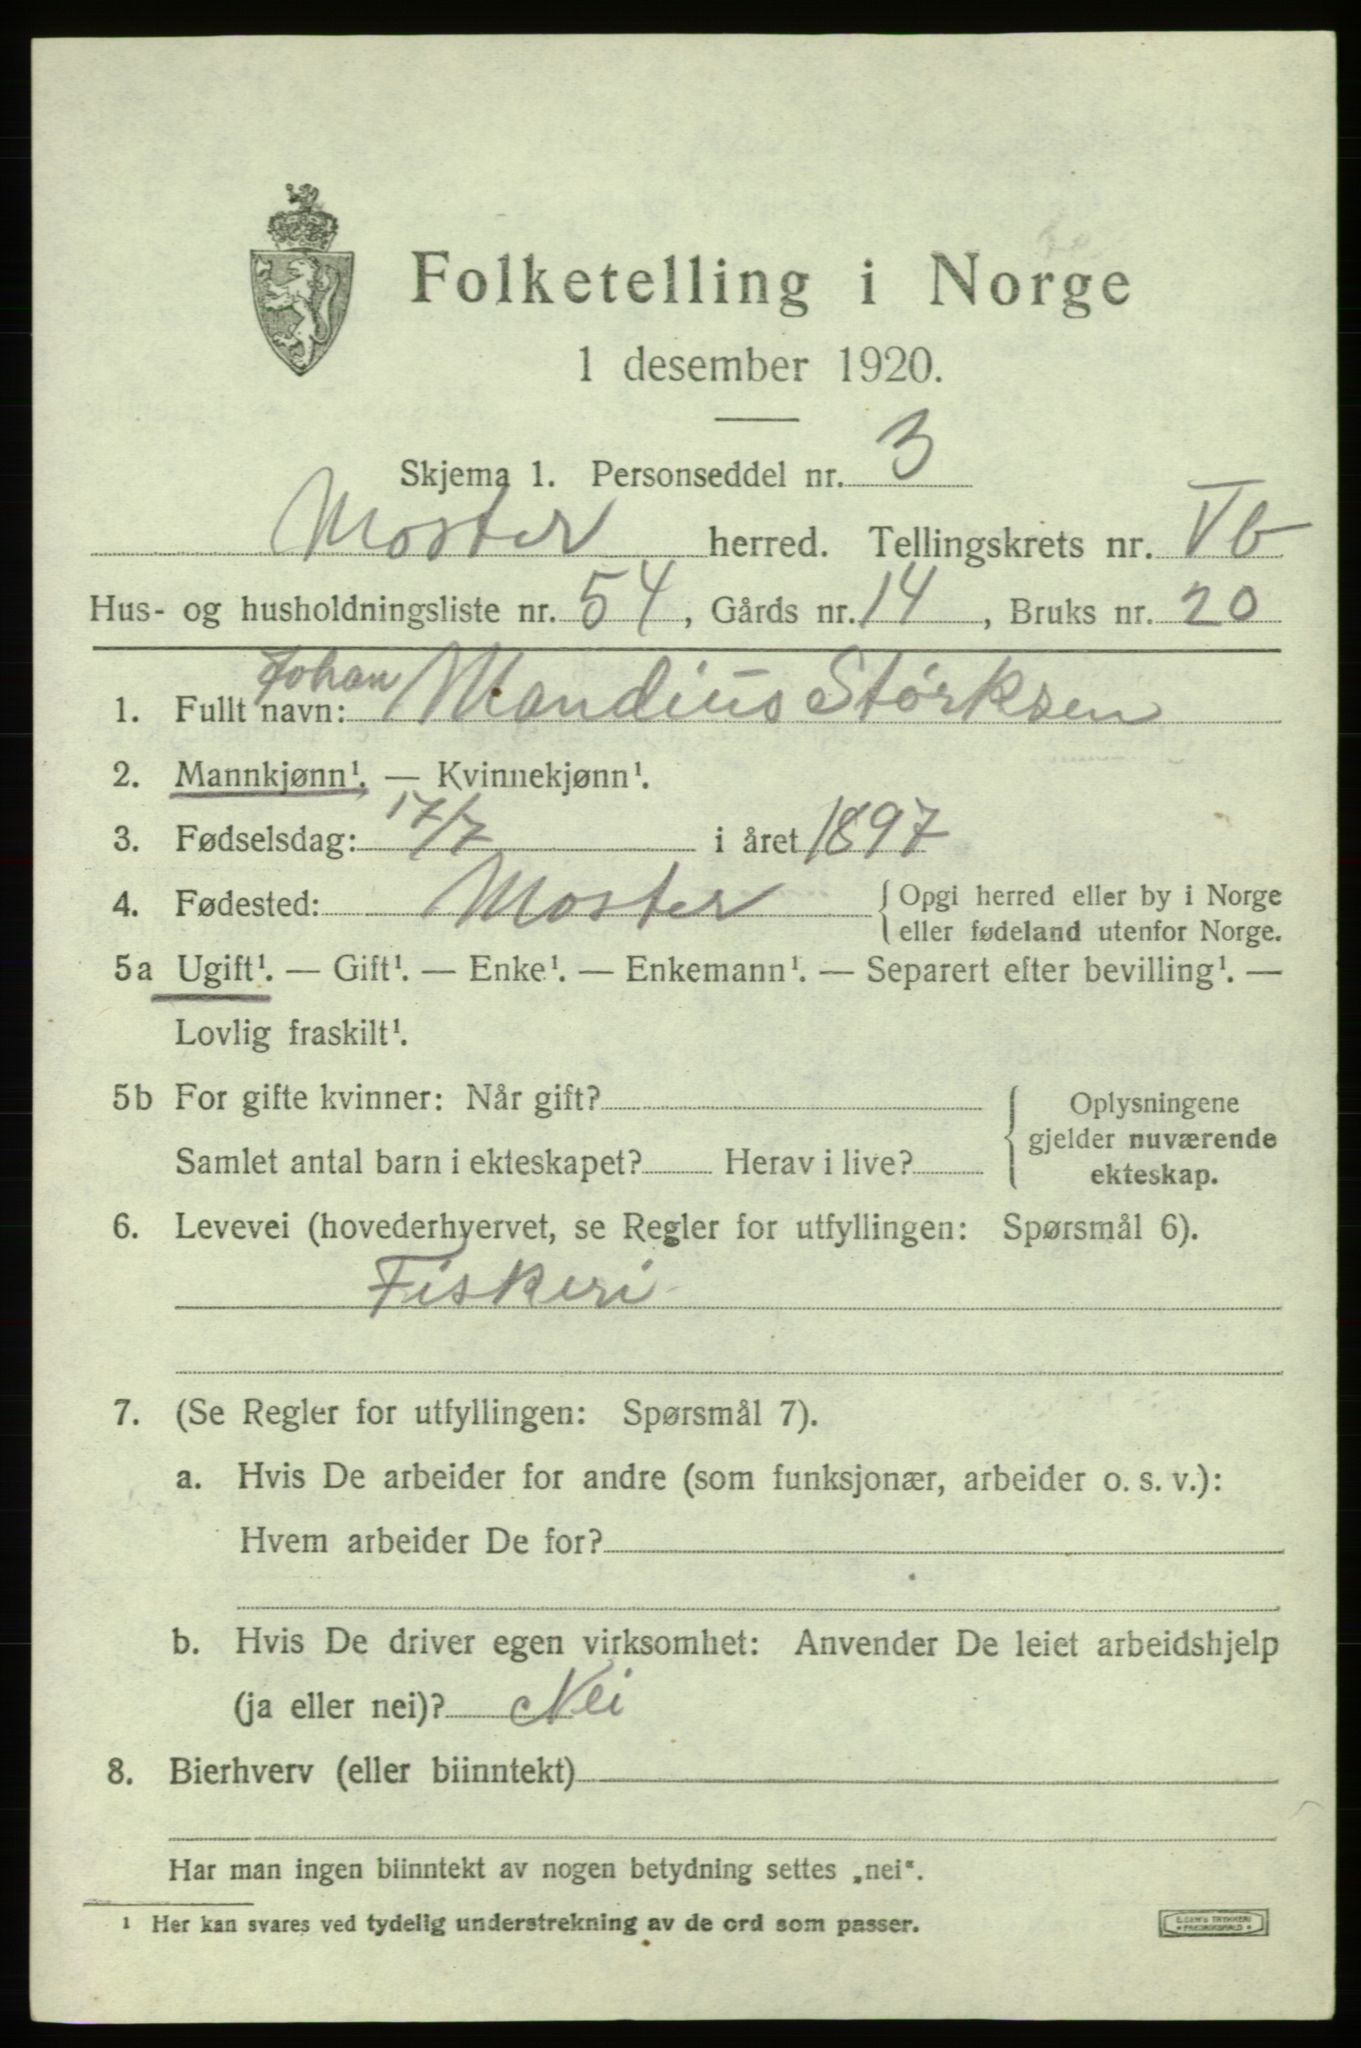 Folketelling i Norge
1 desember 1920.
Skjema 1. Personseddel nr. 3
Moster herred. Tellingskrets nr. Vb
Hus- og husholdningsliste nr. 54, Gårds nr. 14, Bruks nr. 20
Johan
1. Fullt navn: Mandius Størksen
2. Mannkjønn¹. — Kvinnekjønn¹.
3. Fødselsdag: 17/7 i året 1897
4. Fødested: Moster { Opgi herred eller by i Norge
eller fødeland utenfor Norge.
5a Ugift¹. — Gift¹. — Enke¹. — Enkemann¹. — Separert efter bevilling¹. —
Lovlig fraskilt¹.
5b For gifte kvinner: Når gift? { Oplysningene
gjelder nuværende
Samlet antal barn i ekteskapet? Herav i live?
ekteskap.
6. Levevei (hovederhvervet, se Regler for utfyllingen: Spørsmål 6).
Fiskeri
7. (Se Regler for utfyllingen: Spørsmål 7).
a. Hvis De arbeider for andre (som funksjonær, arbeider o. s. v.):
Hvem arbeider De for?
b. Hvis De driver egen virksomhet: Anvender De leiet arbeidshjelp
(ja eller nei)? Nei
8. Bierhverv (eller biinntekt)
Har man ingen biinntekt av nogen betydning settes „nei“.
¹ Her kan svares ved tydelig understrekning av de ord som passer.